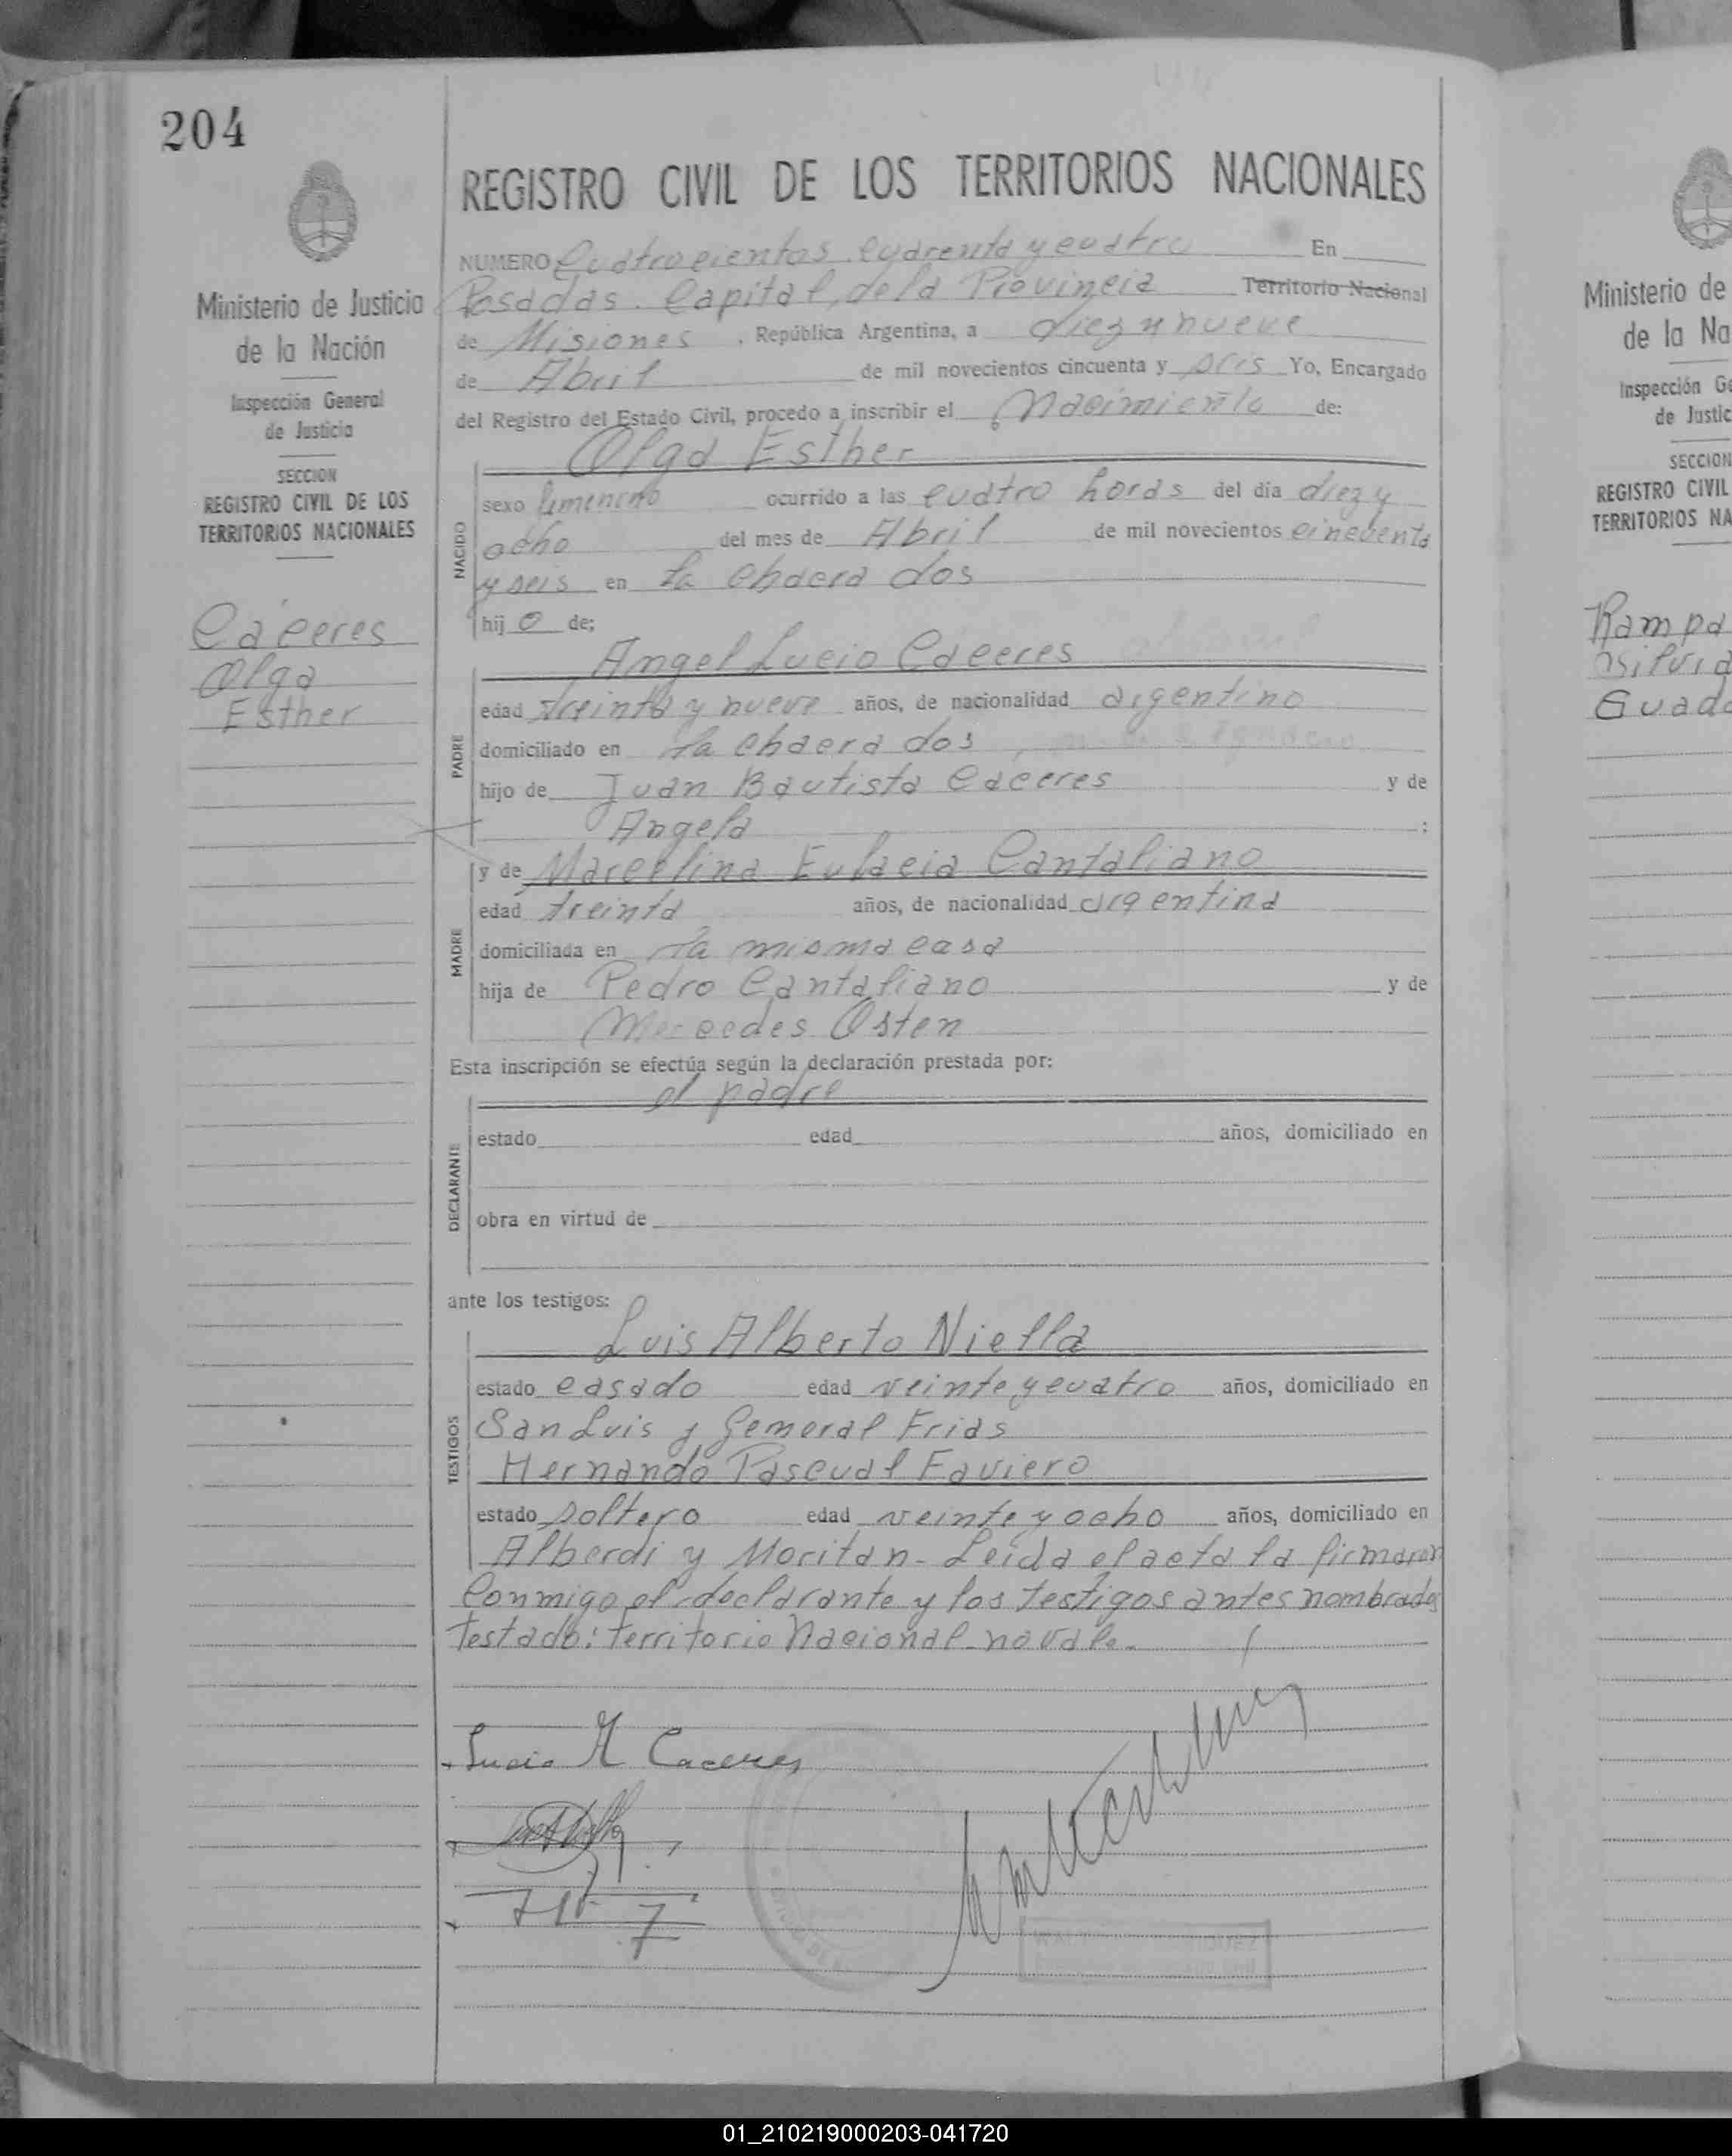 204
REGISTRO CIVIL DE LOS TERRITORIOS NACIONALES
Ministerio de Justicia
de la Nación
Inspección General
de Justicia
SECCION
REGISTRO CIVIL DE LOS
TERRITORIOS NACIONALES
Cáceres
Olga
Esther
NUMERO Cuatrocientos cuarenta y cuatro En
Posadas. Capital, de la Provincia Territorio Nacional
de Misiones , República Argentina, a diez y nueve
de Abril de mil novecientos cincuenta y seis Yo, Encargado
del Registro del Estado Civil, procedo a inscribir el Nacimiento de:
Olga Esther
NACIDO
sexo femenino ocurrido a las cuatro horas del día diez y
ocho del mes de Abril de mil novecientos cincuenta
y seis en la chacra dos
hij a de;
Angel Lucio Cáceres
PADRE
edad treinta y nueve años, de nacionalidad argentino
domiciliado en la chacra dos
hijo de Juan Bautista Cáceres y de
Angela ;
y de Marcelina Eulacia Cantaliano
MADRE
edad treinta años, de nacionalidad argentina
domiciliada en la misma casa
hija de Pedro Cantaliano y de
Mercedes Osten
Esta inscripción se efectúa según la declaración prestada por:
el padre
DECLARANTE
estado edad años, domiciliado en
obra en virtud de
ante los testigos:
Luis Alberto Niella
TESTIGOS
estado casado edad veinte y cuatro años, domiciliado en
San Luis y General Frias
Hernando Pascual Faviero
estado soltero edad veinte y ocho años, domiciliado en
Alberdi y Moritan - Leida el acta la firmaron
Conmigo el declarante y los testigos antes nombrados
Testado: Territorio Nacional no vale.
Lucio A Caceres
Ministerio de
de la Na
Inspección Ge
de Justic
SECCION
REGISTRO CIVIL
TERRITORIOS NA
Rampa
Silvia
Guada
01_210219000203-041720